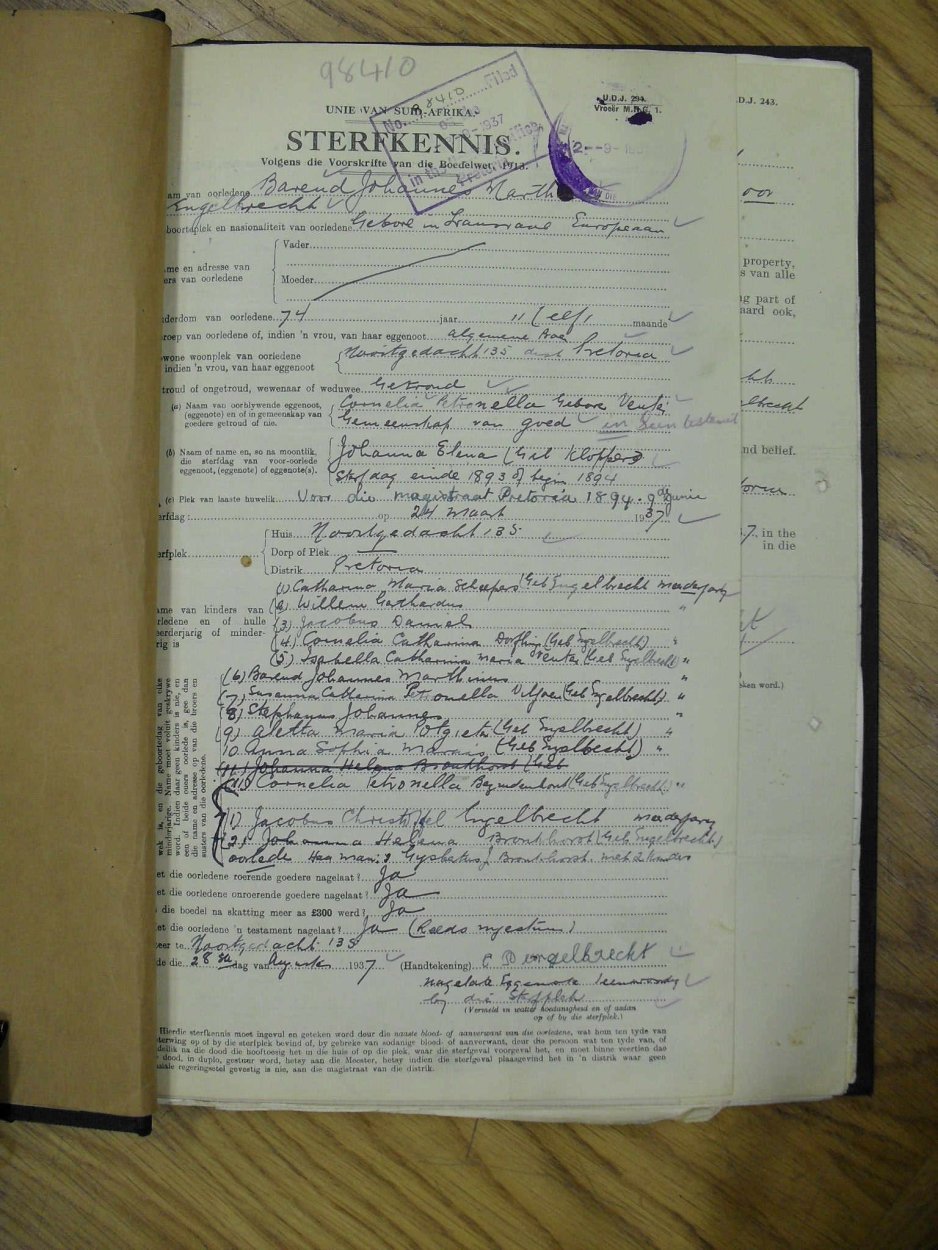 98410
U.D.J. 294.
Vroeër M.H.C. 1.
D.J. 243.
UNIE VAN SUID-AFRIKA.
No. 98410 Filed
STERFKENNIS.
Volgens die Voorskrifte van die Boedelwet, 1913.
am van oorledene Barend Johannes Marth
Engelbrecht
oor
boorteplek en nasionaliteit van oorledene Gebore in Transvaal Europeaan
me en adresse van
ers van oorledene
Vader
Moeder
property,
s van alle
ng part of
aard ook,
derdom van oorledene 74 jaar 11 (elf) maande
roep van oorledene of, indien 'n vrou, van haar eggenoot algemene Boer
wone woonplek van oorledene
indien 'n vrou, van haar eggenoot
Nooitgedacht 135 dist Pretoria
troud of ongetroud, wewenaar of weduwee Getroud
(a) Naam van oorblywende eggenoot,
(eggenote) en of in gemeenskap van
goedere getroud of nie.
Cornelia Petronella Gebore Venter
Gemeenskap van goed en Geen testament
(b) Naam of name en, so na moontlik,
die sterfdag van voor-oorlede
eggenoot, (eggenote) of eggenote(s).
Johanna Elena (Geb Kloppers
Sterfdag einde 1893 of begin 1894
nd belief.
(c) Plek van laaste huwelik. Voor die magistraat Pretoria 1894 9de Junie
erfdag: op 24 Maart 1937
erfplek
Huis Nooitgedacht 135
Dorp of Plek
Distrik Pretoria
7, in the
in die
ame van kinders van
rledene en of hulle
eerderjarig of minder-
rig is
(1) Catharina Maria Scheepers (Geb Engelbrecht meederjarig
(2) Willem Gerhardus "
(3) Jacobus Daniel
(4) Cornelia Catharina Dorfling (Geb Engelbrecht) "
(5) Isabella Catharina Maria Venter (Geb Engelbrecht) "
(6) Barend Johannes Marthinus "
(7) Susanna Catherina Petronella Viljoen (Geb Engelbrecht) "
(8) Stephanus Johannes "
(9) Aletta Maria Potgieter (Geb Engelbrecht) "
10. Anna Sophia Marais (Geb Engelbrecht) "
(11) Johanna Helena Bronkhorst (Geb
(11) Cornelia Petronella Bezuidenhout (Geb Engelbrecht) "
eken word.)
wek is, en die geboortedag van elke
minderjarige. Name moet voluit geskrywe
word. Indien daar geen kinders is nie, en
een of beide ouers oorlede is, gee dan
die name en adresse op van die broers en
susters van die oorledene.
(1) Jacobus Christoffel Engelbrecht meederjarig
(2) Johanna Helena Bronkhorst (Geb Engelbrecht)
oorlede Haar man: Gysbertus J Bronkhorst met 2 kinders
et die oorledene roerende goedere nagelaat? Ja
et die oorledene onroerende goedere nagelaat? Ja
die boedel na skatting meer as £300 werd? Ja
et die oorledene 'n testament nagelaat? Ja (Reeds ingestuur)
eer te Nooitgedacht 135
de die 28ste dag van Augustus 1937 (Handtekening) C P Engelbrecht
nagelate Eggenote teenwoordig
by die Sterfplek
(Vermeld in watter hoedanigheid en of audan
op of by die sterfplek.)
Hierdie sterfkennis moet ingevul en geteken word deur die naaste bloed- of aanverwant van die oorledene, wat ten tyde van
terwing op of by die sterfplek bevind of, by gebreke van sodanige bloed- of aanverwant, deur die persoon wat ten tyde van, of
dellik na die dood die hooftoesig het in die huis of op die plek, waar die sterfgeval voorgeval het, en moet binne veertien dae
dood, in duplo, gestuur word, hetsy aan die Meester, hetsy indien die sterfgeval plaasgevind het in 'n distrik waar geen
siale regeringsetel gevestig is nie, aan die magistraat van die distrik.